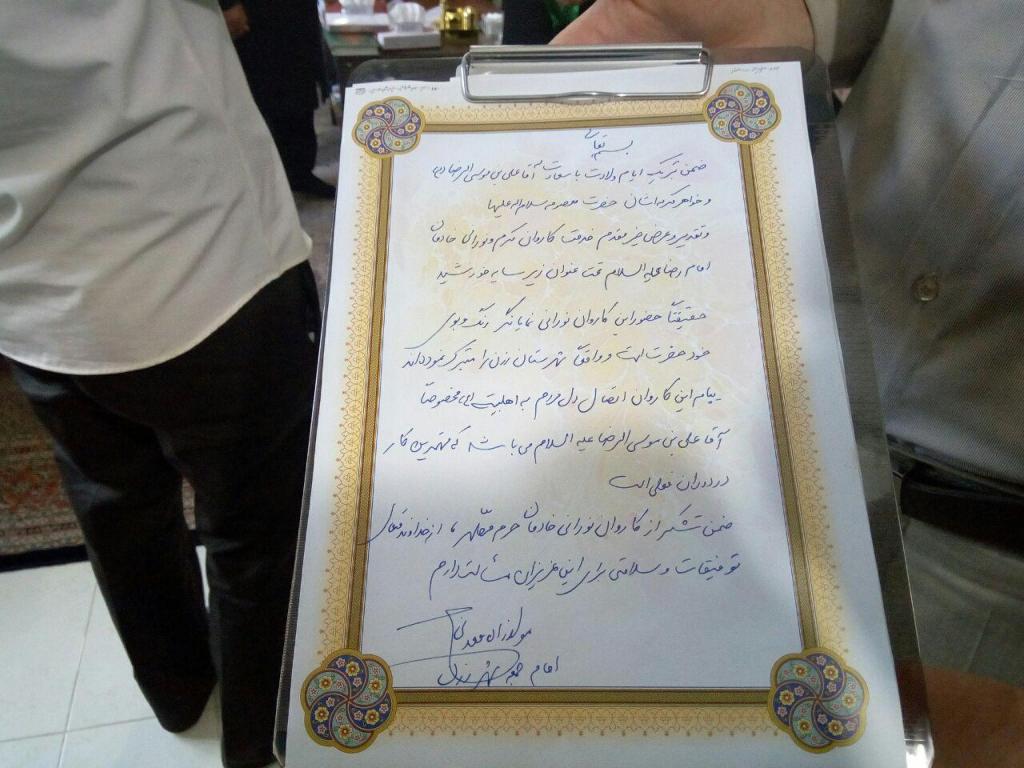 بسمه تعالی
ضمن تبریک ایام ولادت با سعادت آقا علی بن موسی الرضا (ع)
و خواهر مکرمه اشان حضرت معصومه سلام اله علیها
و تقدیر و عرض خیر مقدم خدمت کاروان مکرم و نورانی خادمان
امام رضا علیه السلام تحت عنوان زیر سایه خورشید
حقیقتاً حضور این کاروان نورانی نمایانگر رنگ و بوی
خود حضرت است و واقعاً شهرستان رزن را متبرک نموده اند
پیام این کاروان اتصال دل مردم به اهلبیت است مخصوصاً
آقا علی بن موسی الرضا علیه السلام می باشد که مهمترین کار
در دوران فعلی است
ضمن تشکر از کاروان نورانی خادمان حرم مطهر از خداوند تعالی
توفیقات و سلامتی برای این عزیزان مسألت دارم
امام جمعه شهر رزن